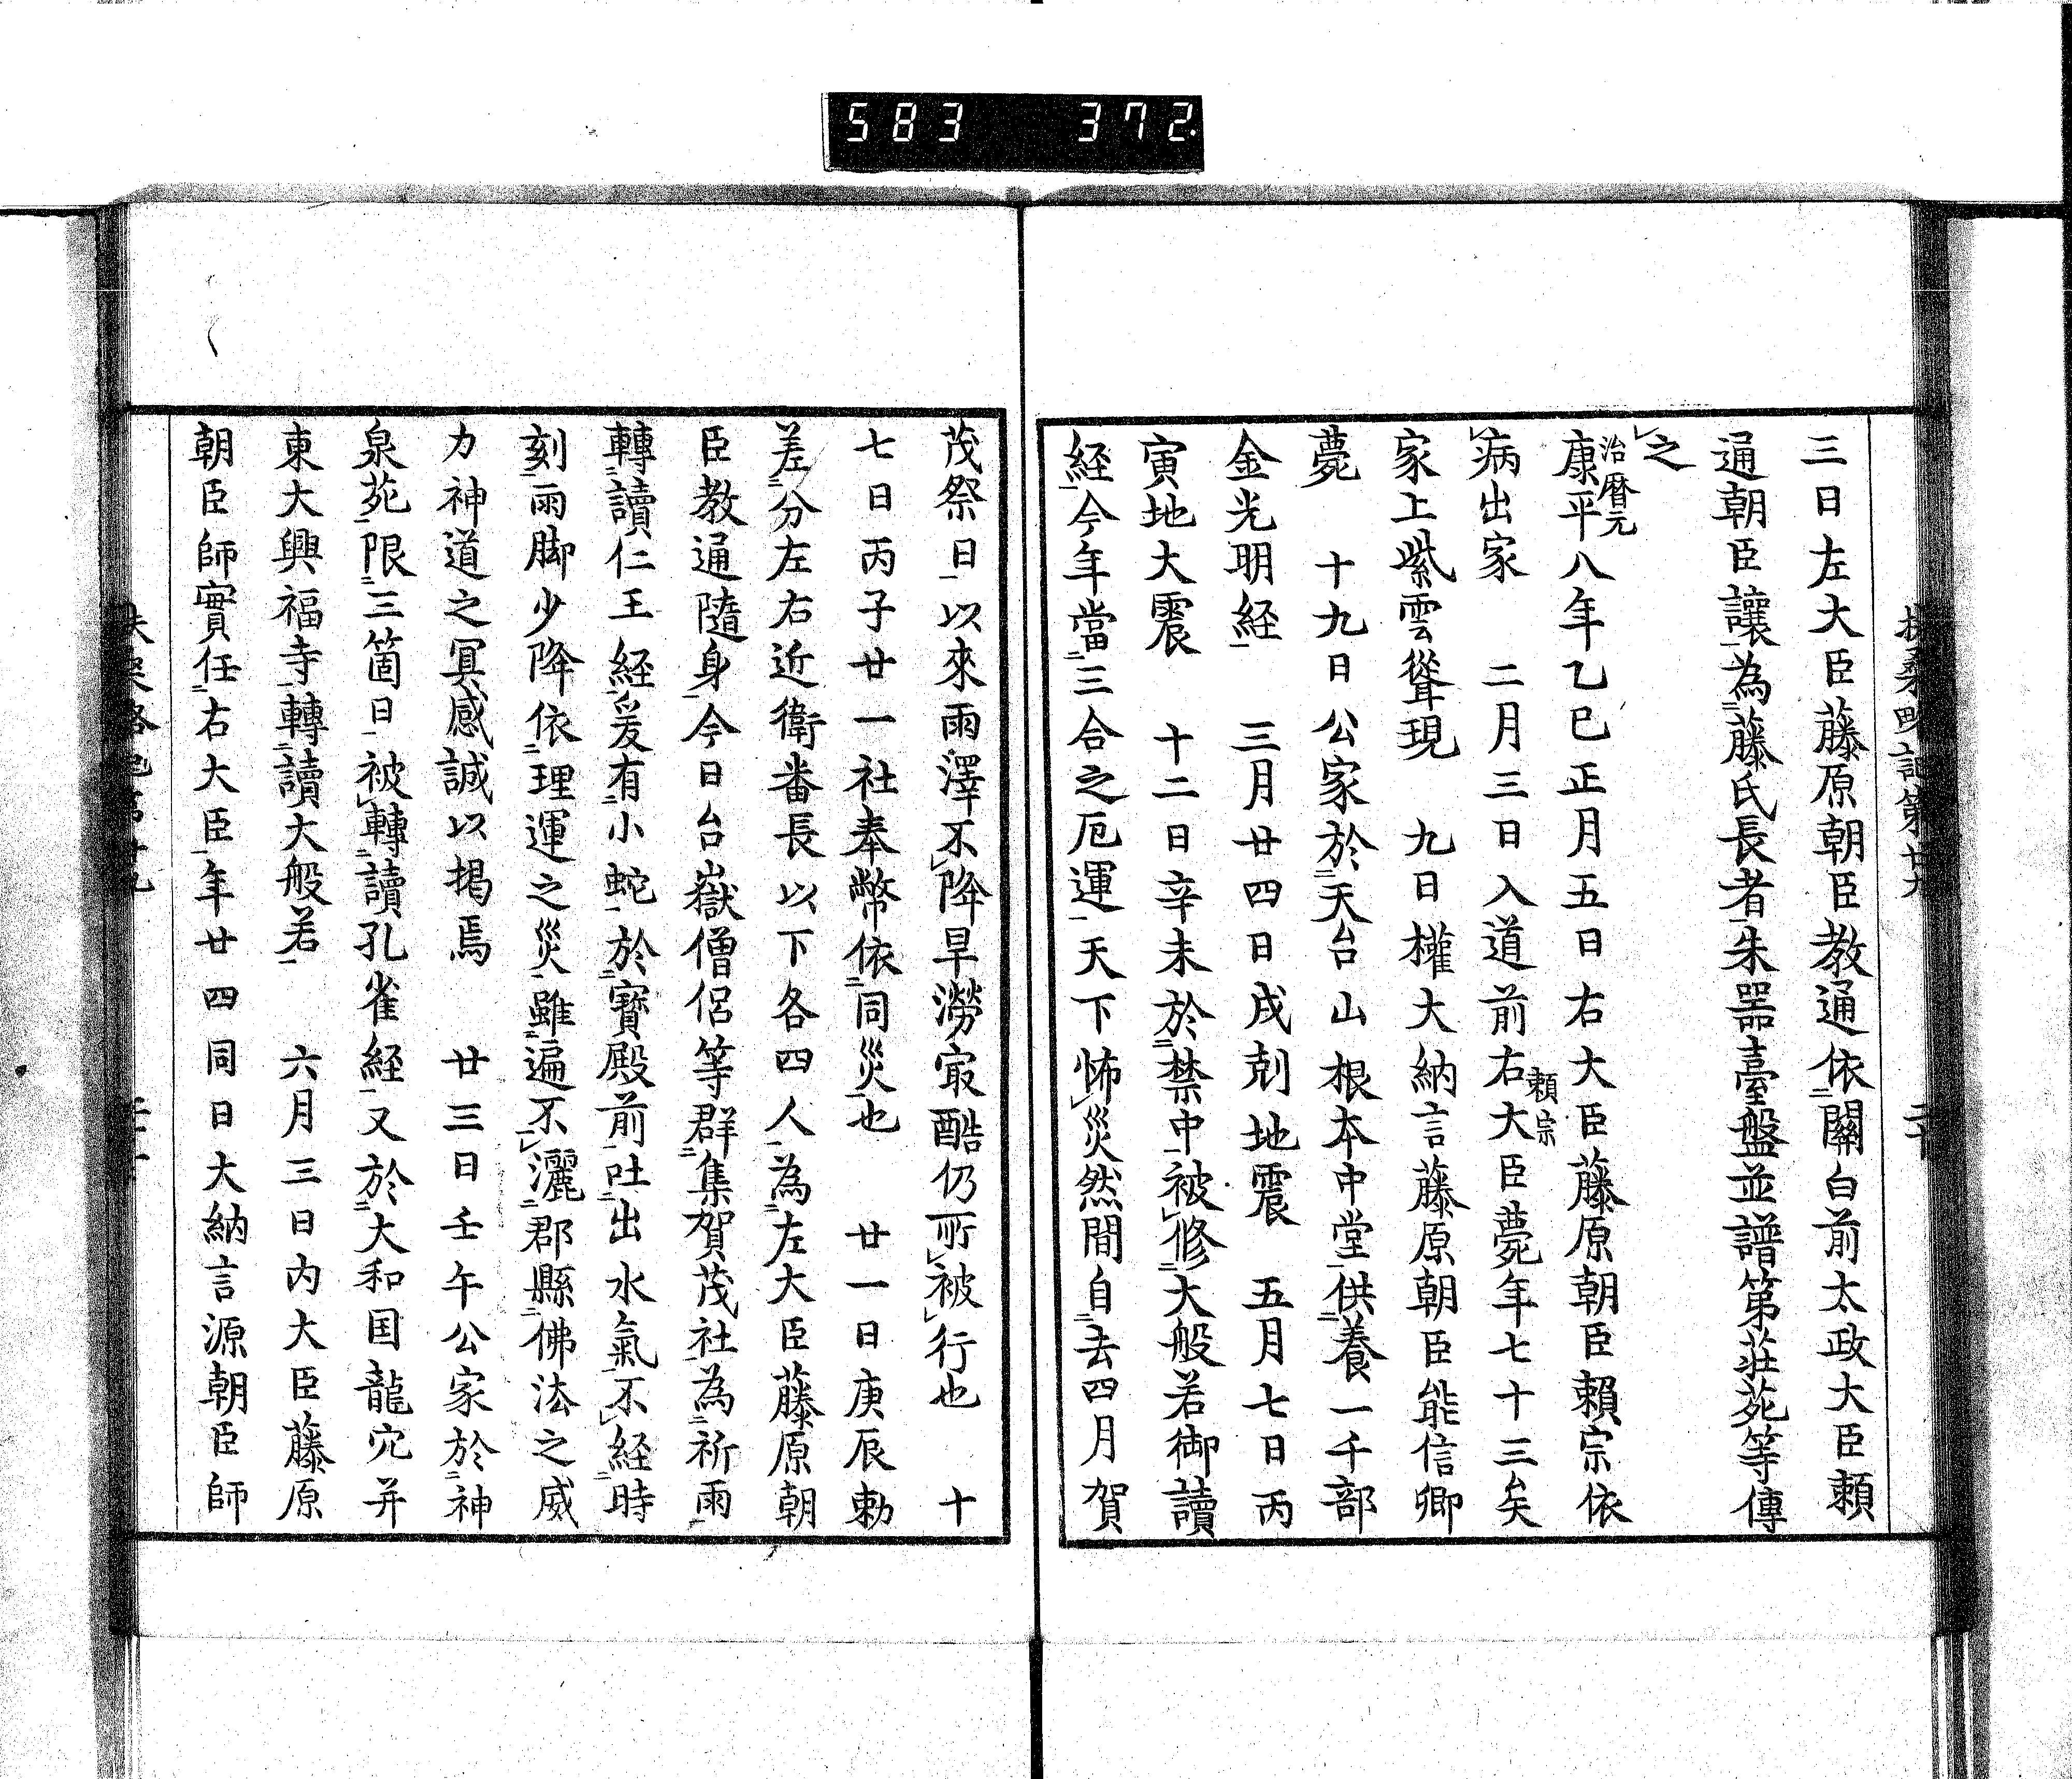 583 372
三日左大臣藤原朝臣教通依二關白前太政大臣頼
通朝臣讓一為二藤氏長者一朱器臺盤並譜第莊苑等傳
レ之
治暦元
康平八年乙巳正月五日右大臣藤原朝臣頼宗依
レ病出家 二月三日入道前右大臣薨年七十三矣
頼宗
家上紫雲聳現 九日權大納言藤原朝臣能信卿
薨 十九日公家於二天台山根本中堂一供二養一千部
金光明経一 三月廿四日戌剋地震 五月七日丙
寅地大震 十二日辛未於二禁中一被レ修二大般若御讀
経一今年當二三合之厄運一天下怖レ災然間自二去四月賀
茂祭日一以來雨澤不レ降旱澇㝡酷仍所レ被レ行也 十
七日丙子廿一社奉幣依二同災一也 廿一日庚辰勅
差二分左右近衛番長以下各四人一為二左大臣藤原朝
臣教通隨身一今日台嶽僧侶等群二集賀茂社一為二祈雨一
轉二讀仁王経一爰有二小蛇一於二寳殿前一吐二出水氣一不レ経二時
刻一雨脚少降依二理運之災一雖二遍不一レ灑二郡縣一佛法之威
力神道之冥感誠以掲焉 廿三日壬午公家於二神
泉苑一限二三箇日一被レ轉二讀孔雀経一又於二大和国龍穴并
東大興福寺一轉二讀大般若一 六月三日内大臣藤原
朝臣師實任二右大臣一年廿四同日大納言源朝臣師